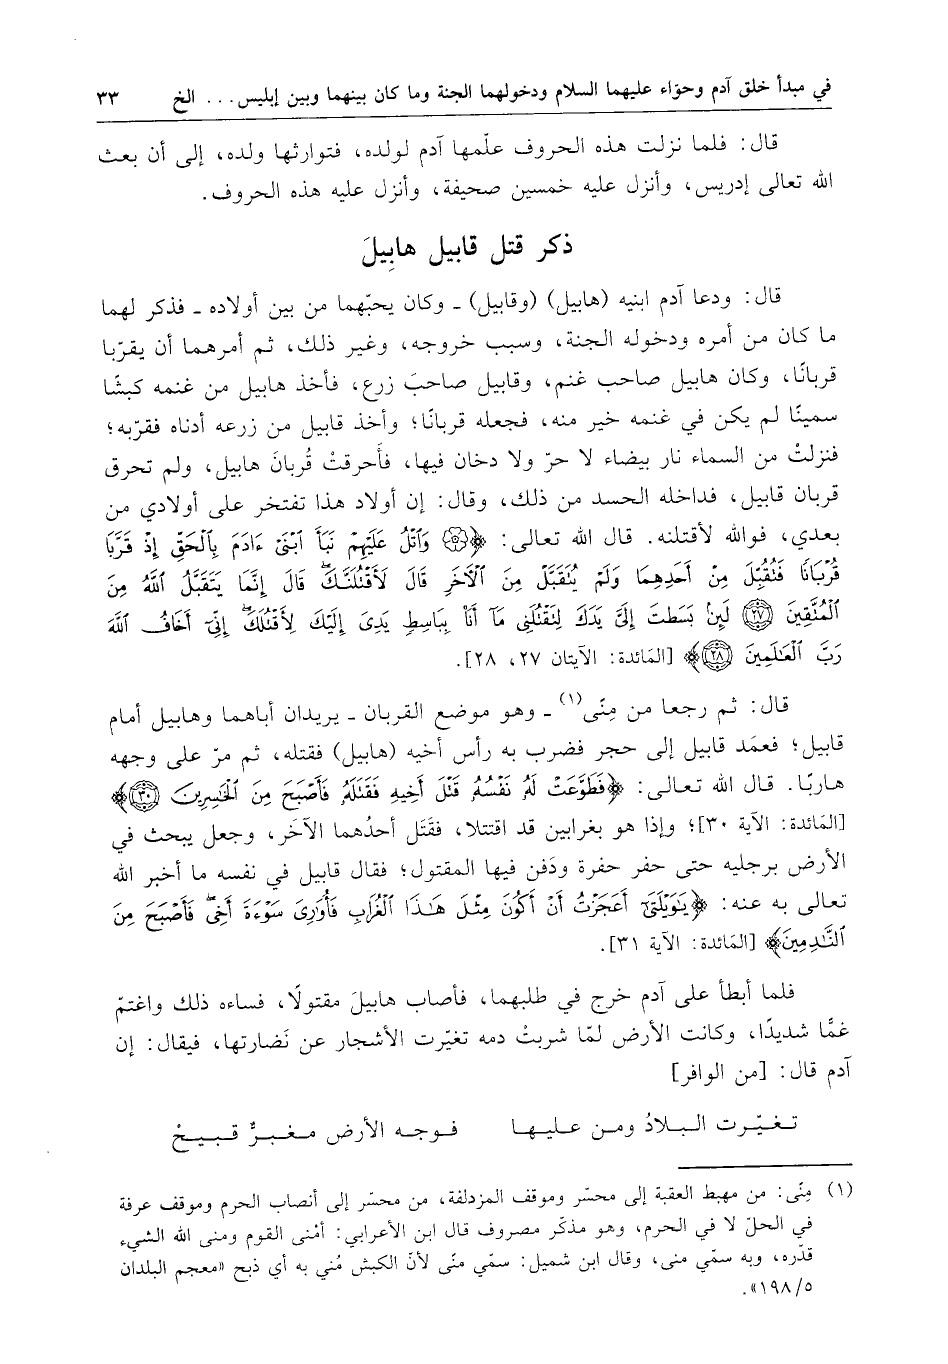 في مبدأ خلق آدم وحوّاء عليهما السلام ودخولهما الجنة وما كان بينهما وبين إبليس... الخ ٣٣
قال: فلما نزلت هذه الحروف علّمها آدم لولده، فتوارثها ولده، إلى أن بعث
الله تعالى إدريس، وأنزل عليه خمسين صحيفة، وأنزل عليه هذه الحروف.
ذكر قتل قابيل هابِيلَ
قال: ودعا آدم ابنيه (هابيل) (وقابيل) ـ وكان يحبّهما من بين أولاده ـ فذكر لهما
ما كان من أمره ودخوله الجنة، وسبب خروجه، وغير ذلك، ثم أمرهما أن يقرّبا
قربانًا، وكان هابيل صاحب غنم، وقابيل صاحبَ زرع، فأخذ هابيل من غنمه كبشًا
سمينًا لم يكن في غنمه خير منه، فجعله قربانًا؛ وأخذ قابيل من زرعه أدناه فقرّبه؛
فنزلتْ من السماء نار بيضاء لا حرّ ولا دخان فيها، فأَحرقتْ قُربانَ هابيل، ولم تحرق
قربان قابيل، فداخله الحسد من ذلك، وقال: إن أولاد هذا تفتخر على أولادي من
بعدي، فوالله لأقتلنه. قال الله تعالى: ﴿۞ وَٱتْلُ عَلَيْهِمْ نَبَأَ ٱبْنَىْ ءَادَمَ بِٱلْحَقِّ إِذْ قَرَّبَا
قُرْبَانًا فَتُقُبِّلَ مِنْ أَحَدِهِمَا وَلَمْ يُتَقَبَّلْ مِنَ ٱلْآخَرِ قَالَ لَأَقْتُلَنَّكَ ۖ قَالَ إِنَّمَا يَتَقَبَّلُ ٱللَّهُ مِنَ
ٱلْمُتَّقِينَ ﴿٢٧﴾ لَئِنۢ بَسَطتَ إِلَىَّ يَدَكَ لِتَقْتُلَنِى مَآ أَنَا۠ بِبَاسِطٍ يَدِىَ إِلَيْكَ لِأَقْتُلَكَ ۖ إِنِّىٓ أَخَافُ ٱللَّهَ
رَبَّ ٱلْعَٰلَمِينَ ﴿٢٨﴾﴾ [المَائدة: الآيتان ٢٧، ٢٨].
قال: ثم رجعا من مِنًى(١) ـ وهو موضع القربان ـ يريدان أباهما وهابيل أمام
قابيل؛ فعمَد قابيل إلى حجر فضرب به رأس أخيه (هابيل) فقتله، ثم مرّ على وجهه
هاربًا. قال الله تعالى: ﴿فَطَوَّعَتْ لَهُۥ نَفْسُهُۥ قَتْلَ أَخِيهِ فَقَتَلَهُۥ فَأَصْبَحَ مِنَ ٱلْخَٰسِرِينَ ﴿٣٠﴾﴾
[المَائدة: الآية ٣٠]؛ وإذا هو بغرابين قد اقتتلا، فقَتَل أحدُهما الآخَر، وجعل يبحث في
الأرض برجليه حتى حفر حفرة ودَفن فيها المقتول؛ فقال قابيل في نفسه ما أخبر الله
تعالى به عنه: ﴿يَٰوَيْلَتَىٰٓ أَعَجَزْتُ أَنْ أَكُونَ مِثْلَ هَٰذَا ٱلْغُرَابِ فَأُوَٰرِىَ سَوْءَةَ أَخِى ۖ فَأَصْبَحَ مِنَ
ٱلنَّٰدِمِينَ﴾ [المَائدة: الآية ٣١].
فلما أبطأ على آدم خرج في طلبهما، فأصاب هابيلَ مقتولًا، فساءه ذلك واغتمّ
غمًّا شديدًا، وكانت الأرض لمّا شربتْ دمه تغيّرت الأشجار عن نَضارتها، فيقال: إن
آدم قال: [من الوافر]
تغيّرت البلادُ ومن عليها فوجه الأرض مغبرٌّ قبيحْ
(١) مِنًى: من مهبط العقبة إلى محسّر وموقف المزدلفة، من محسّر إلى أنصاب الحرم وموقف عرفة
في الحلّ لا في الحرم، وهو مذكّر مصروف قال ابن الأعرابي: أمْنى القوم ومنى الله الشيء
قدّره، وبه سمّي منى، وقال ابن شميل: سمّي منًى لأنّ الكبش مُني به أي ذبح «معجم البلدان
٥/ ١٩٨».